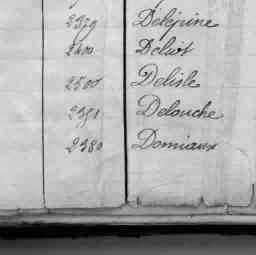 2379 Delépine
2400 Deluot
2500 Delisle
2350 Delouche
2380 Domiaux